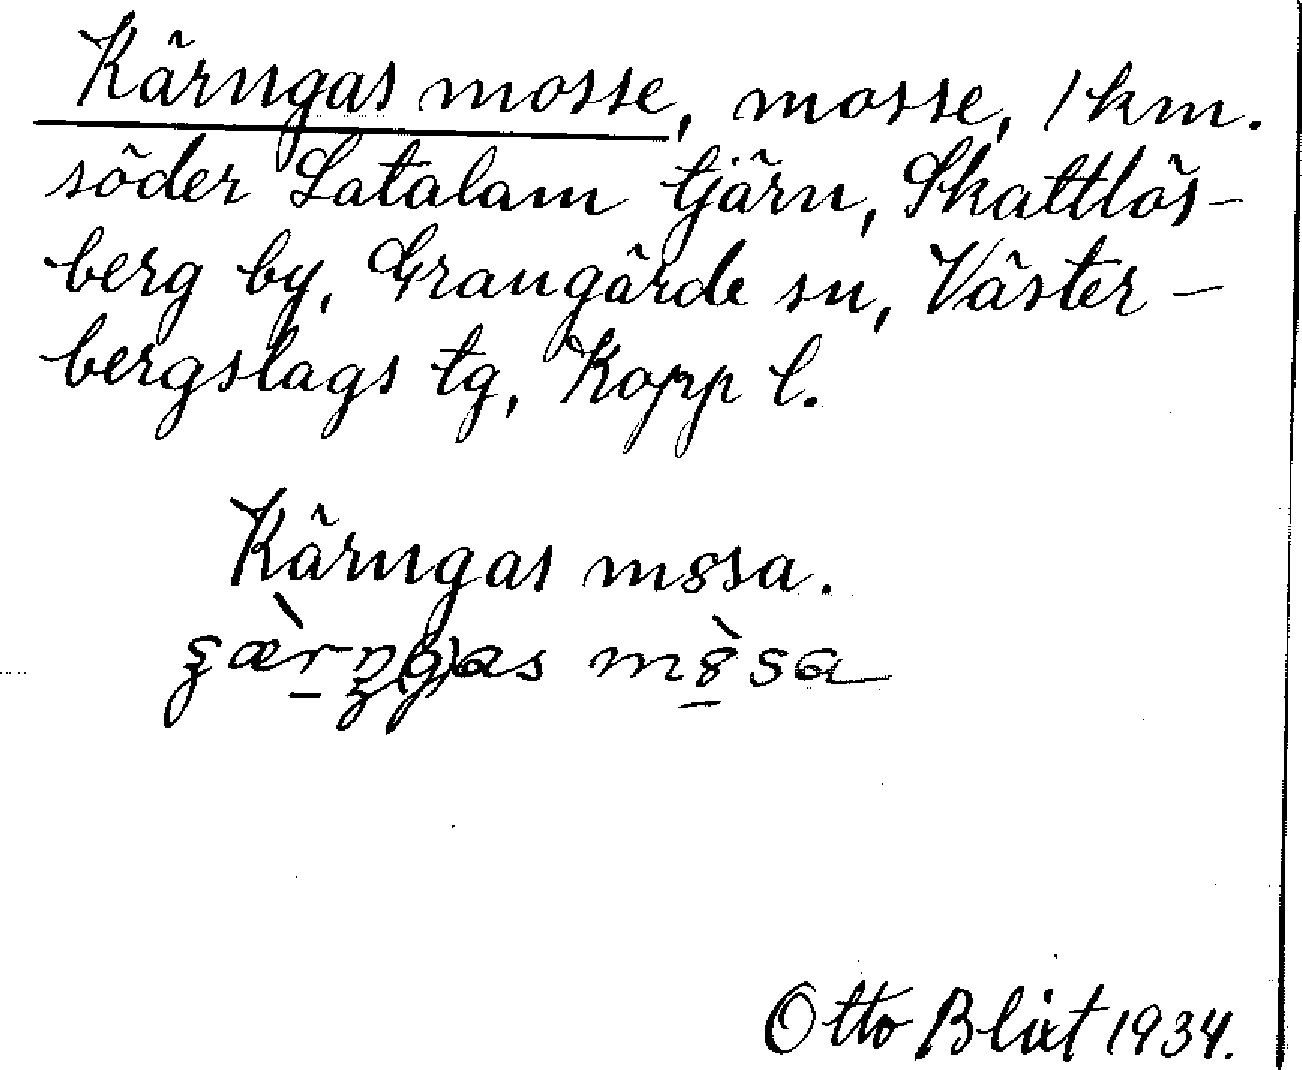 Kärngas mosse, mosse, 1 km.
söder Latalam tjärn, Skattlös-
berg by, Grangärde sn, Väster-
bergslags tg, Kopp l.
Kärngas måssa.
Otto Blixt 1934.